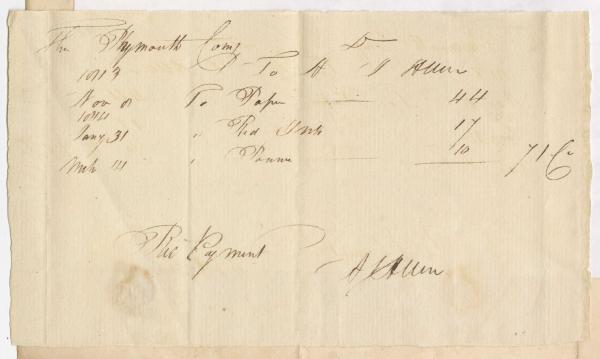 The Plymouth Comy Dr
To A J Allen
1843
Nov 8 To Paper 44
1844
Jany 31 " Red Ink 17
Mch 14 " 10 71 Cs
Rec Payment
A J Allen